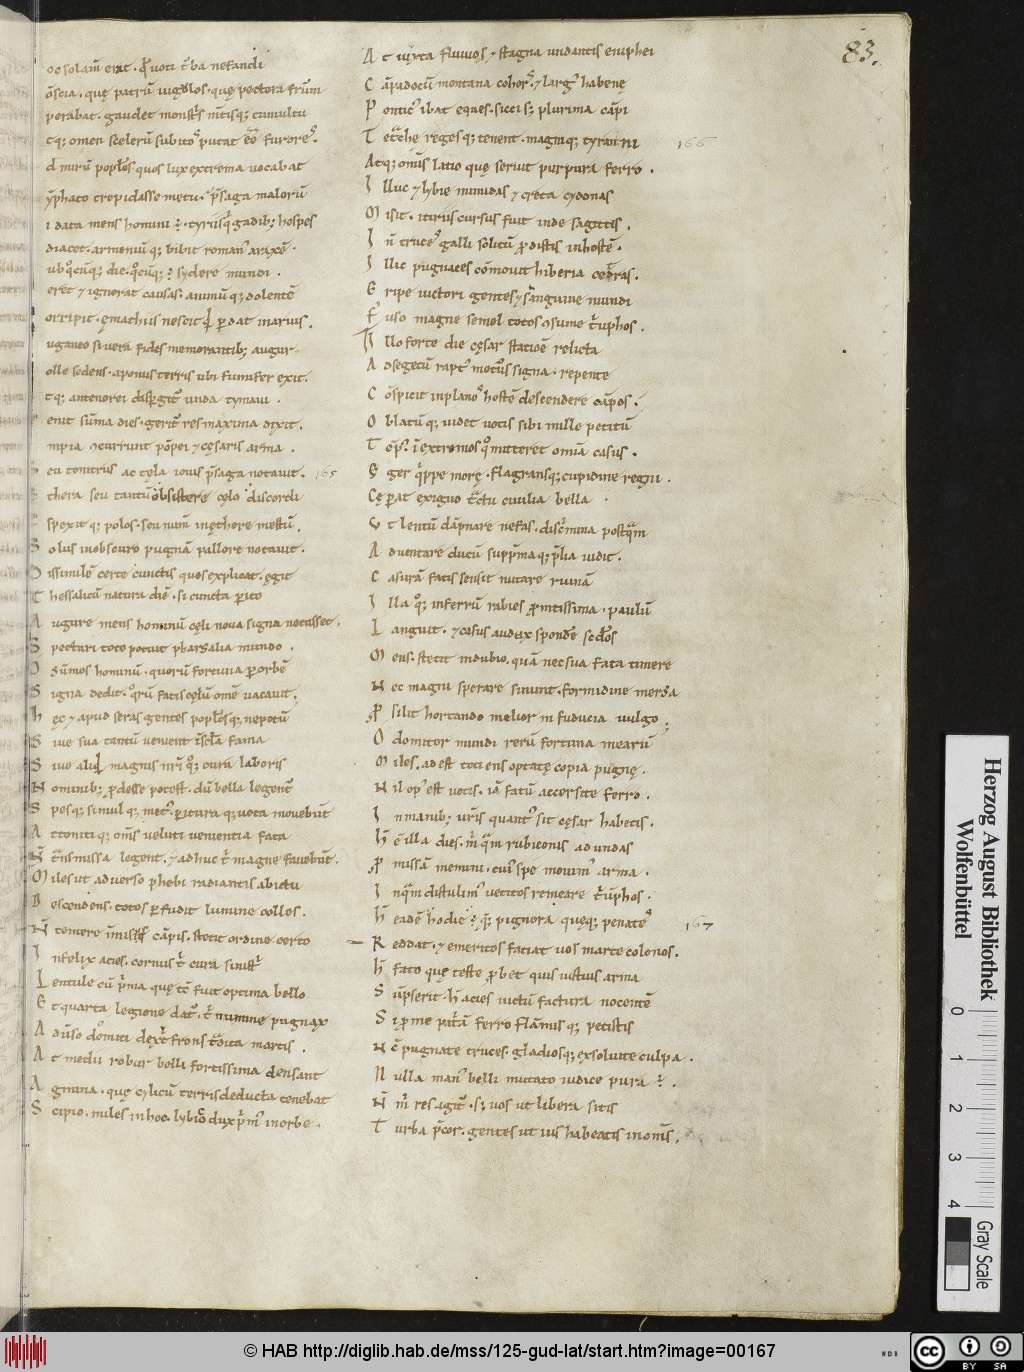 83.
oc solam̄ erat. qͥ uoti t̄ba nefandi
c̄scia. quę patrū iugulos. quę pectora frm̄
perabat. gaudet monstͥs m̄tisq; tumultu
tq; omen scelerū subitoˢ putat eē furoreˢ.
d mirū popl̓os quos lux extrema uocabat
ȳphato trepidasse metu. p̄saga malorū
i data mens homini ē. tyriisqͥ gadib; hospes
diacet. armeniū q; bibit roman' araxē.
ub qͦcūq; die. qͦcūq; ē sydere mundi.
eret & ignorat causas. animū q; dolentē
orripit. ęmathiis nescit qͥd ꝑdat in arius.
uganeo si uera fides memorantib; augur
olle sedens. aponus terris ubi fumifer exit.
tq; antenorei disp̄git̄ unda tymaui.
enit sūma dies. gerit̄ res maxima dixit.
mpia ↄcurrunt pōpei & cęsaris arma.
S eu tonitrus ac tęla iouis p̄saga notauit. 165
thera seu tantū obsistere cęlo discordi
spexit q; polos. seu num̄ in ęthere mestū.
S olus in obscuro pugnā pallore notauit.
D issimilē certe cunctis quos explicat. ęgit
T hessalicū natura diē. si cuncta ꝑito
A ugure mens hominū cęli noua signa notasset.
S pectari toto potuit pharsalia mundo.
O sūmos hominū. quorū fortuna ꝑ orbē
S igna dedit. qͦrū fatis cęlū omē uacauit.
h ęc & apud seras gentes popl̓osq; nepotū
S iue sua tantū uenient ī scl̓a fama
S iue aliqͥd magnis nr̄i qͦq; cura laboris
N ominib; ꝓdesse potest. dū bella legent̄
S pesq; simul q; met'. ꝑitura q; uota mouebūt
A ttoniti q; om̄s ueluti uenientia fata
N̄ t̄nsmissa legent. & adhuc t̄ magne fauebūt.
M iles ut aduerso phebi radiatus ab ictu
D escendens. totos ꝑfudit lumine colles.
N̄ temere īmissꝰ cāpis. stetit ordine certo
I nfelix acies. cornus t̄ cura sinistͥ
L entule cū p̄ma quę tc̄ fuit optima bello
E t quarta legione dat'. t̄ numine pugnax
A duͥso domiti dext̄ frons t̄dita martis.
A t medii robur belli fortissima densant
A gmina. quę cylicū terris deducta tenebat
S cipio. miles in hoc. lybico dux p̄m' in orbe.
A t iuxta fluuios & stagna undantis eniphei
C āpadocū montana cohorˢ. & larg' habenę
P ontic' ibat eques. sicci s; plurima cāpi
T etͣrchę reges q; tenent. magniq; tyranni 166
Atq; om̄is latio quę seruit purpura ferro.
I lluc & lybię numidas & creta cydonas
M isit. ituris cursus fuit inde sagittis.
I n̄ truceˢ galli solitū ꝓdistis in hostē.
I llic pugnaces cōmouit hiberia cetras.
E ripe uictori gentes & sanguine mundi
F uso magne semel totos ↄsume t̄uphos.
I llo forte die cęsar statioē relicta
A d segetū rapt' motu̓ros signa. repente
C ōspicit in planoˢ hostē descendere cāpos.
O blatū q; uidet uotis sibi mille petitū
T ēp'. ī extremos qͦ mitteret om̄ia casus.
E ger qͥppe morę. flagransq; cupidine regni.
Cę ꝑat exiguo tͣctu ciuilia bella
V t lentū dāpnare nefas. discͥmina postqͣm
A duentare ducū supp̄ma q; p̄lia uidit.
C asurā fatis sensit nutare ruinā
I lla qͦq; in ferrū rabies ꝓmtissima. paulū
L anguit. & casus audax spondē scd̓os
M ens. stetit in dubio. quā nec sua fata timere
N ec magni sperare sinunt. formidine mersa
P̄ silit hortando melior in fiducia uulgo.
O domitor mundi rerū fortuna mearū
M iles. adest toti ens optatę copia pugnę.
N il op' est uotis. iā fatū accersite ferro.
I n manib; urī̄s quant' sit cęsar habetis.
h̄ ē illa dies. m̄ qͣm rubiconis ad undas
ꝓ missā memini. cui' spe mouim' arma.
I nqͣm distulim' uetitos remeare t̄uphos.
h̄ eadē hodie ē q; pignora quęq; penateˢ 167
R eddat. & emeritos faciat uos marte colonos.
h̄ fato quę teste ꝓbet quis iustius arma
S ūpserit. h̄ acies uictū factura nocentē
S i ꝓ me patͥā ferro flāmis q; petistis
N c̄ pugnate truces. gladiosq; exsoluite culpa.
N ulla man' belli mutato iudice pura ē.
N̄ m̄ res agit̄. s; uos ut libera sitis
T urba p̄cor. gentes ut ius habeatis in om̄s.
Herzog August Bibliothek
Wolfenbüttel
0
1
2
3
4
Gray Scale
© HAB http://diglib.hab.de/mss/125-gud-lat/start.htm?image=00167
WDB
cc BY SA